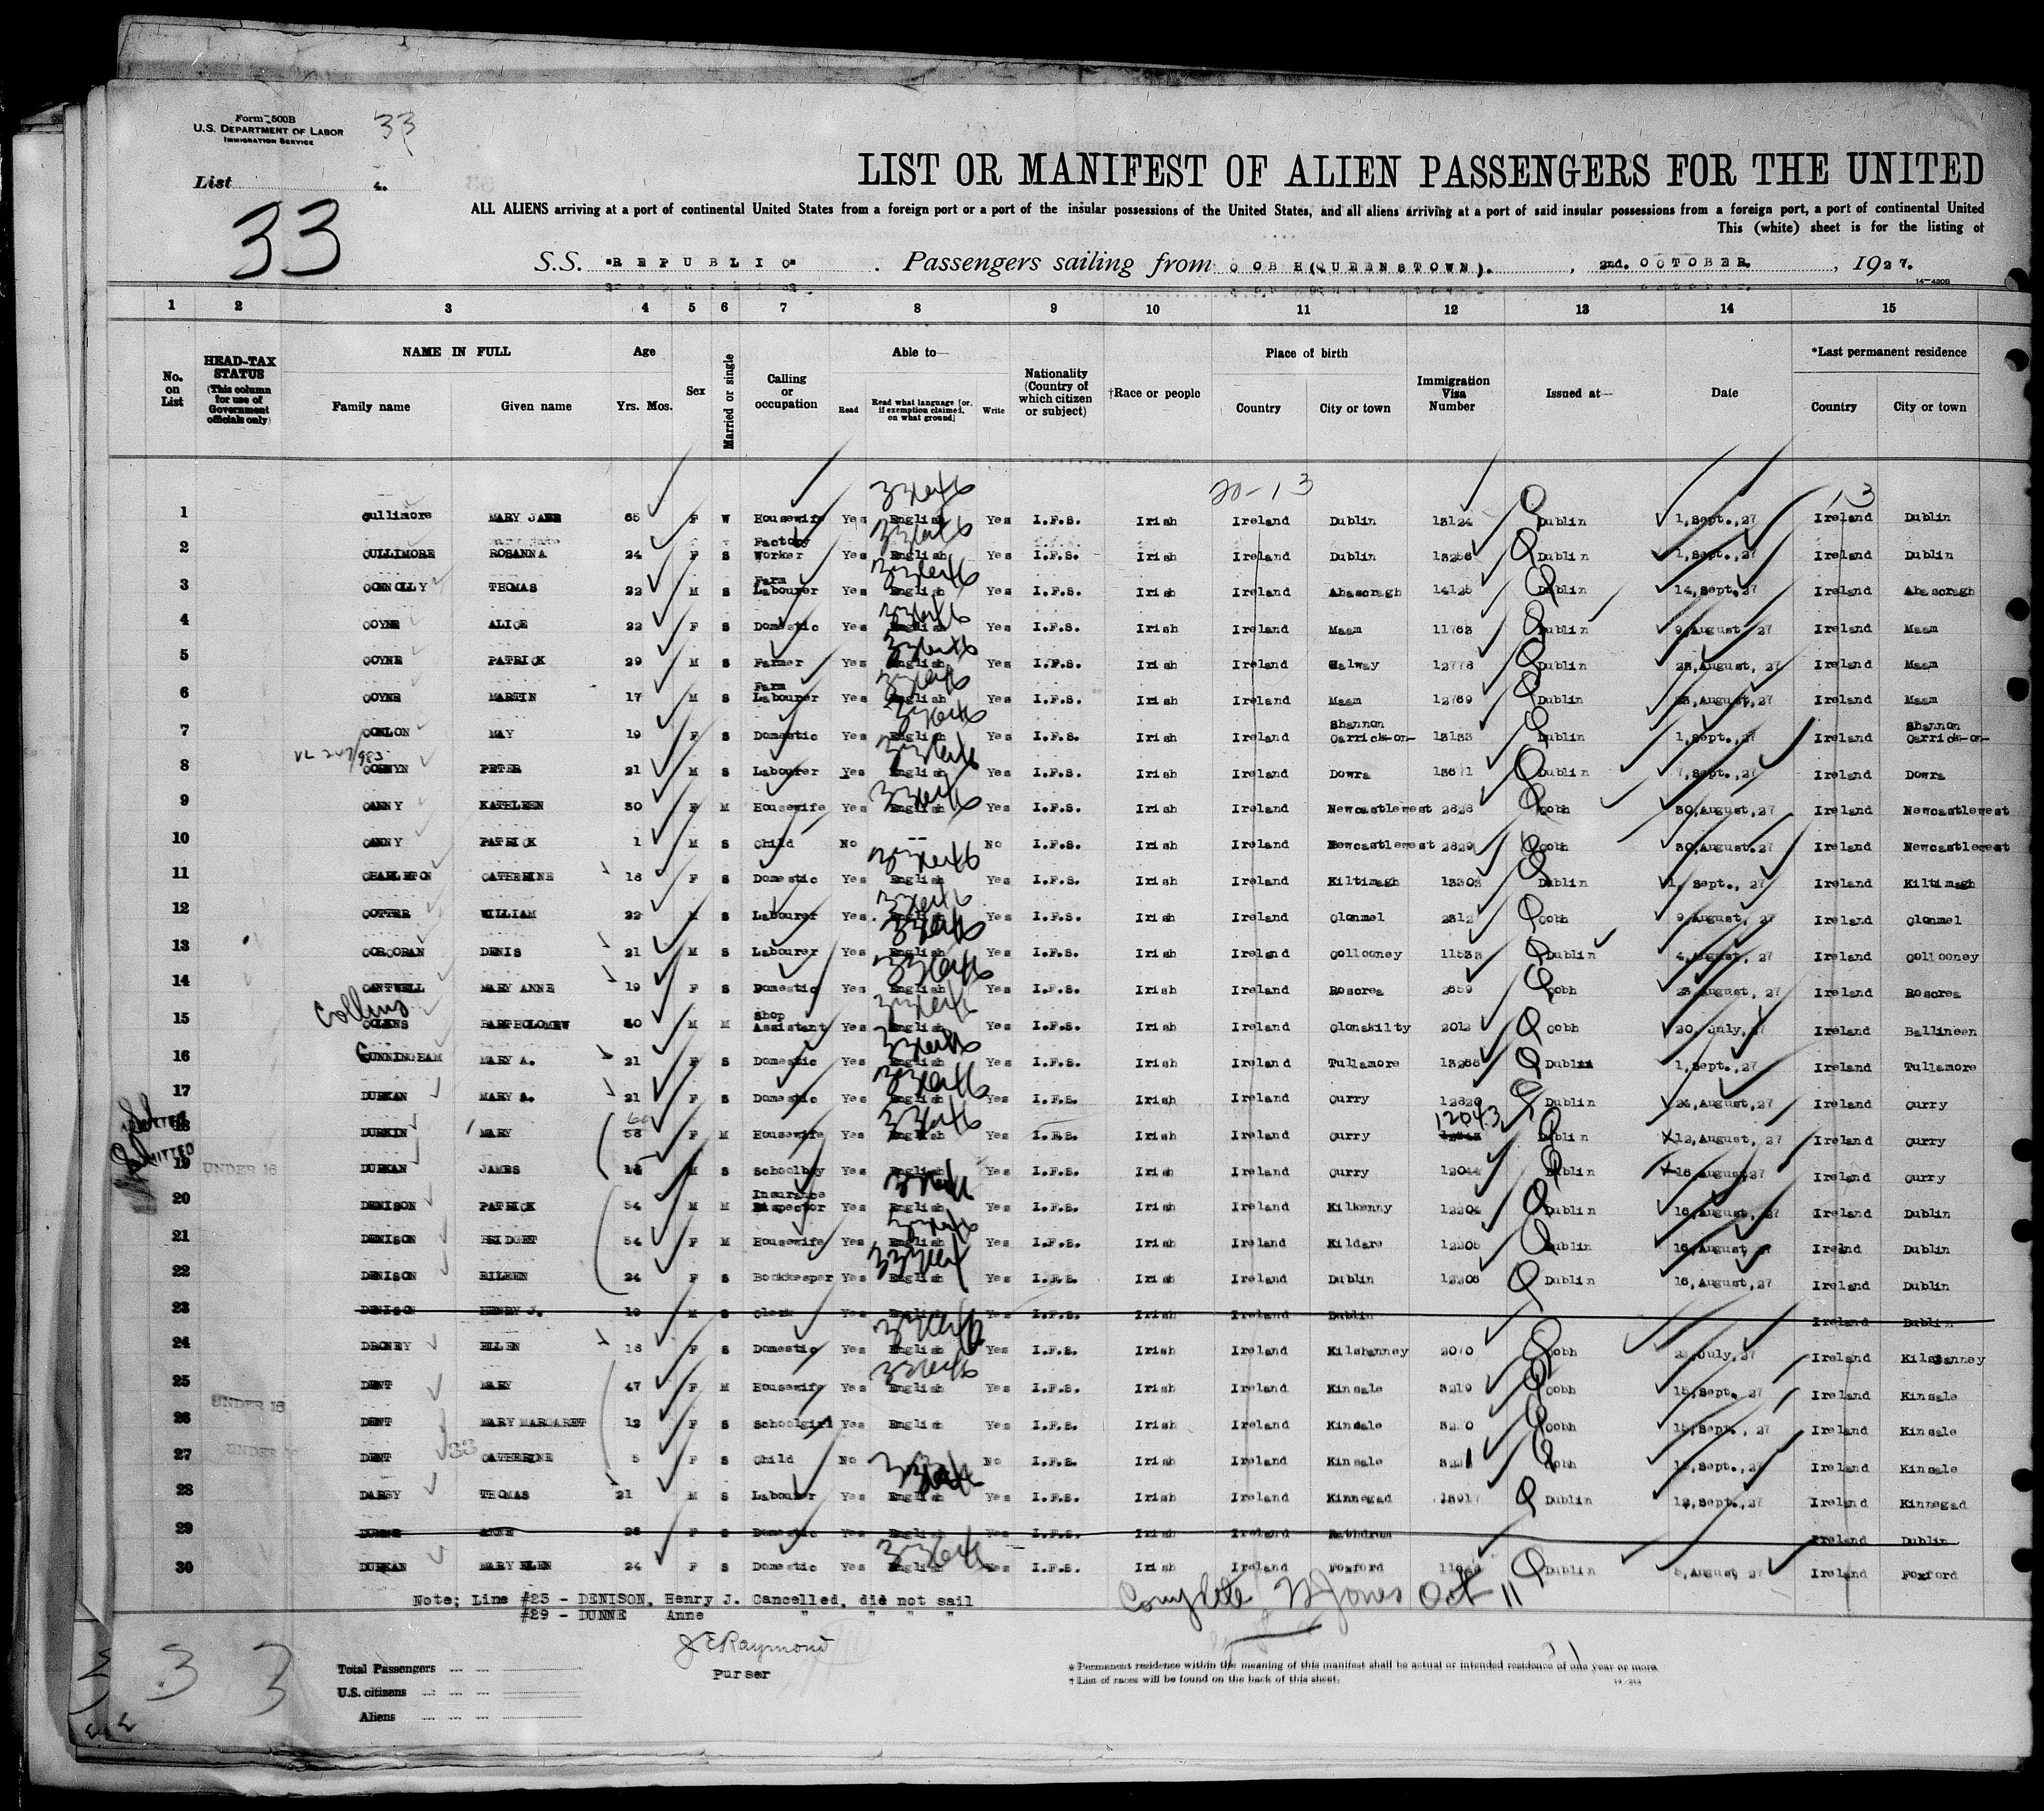 Form 500B
U.S. DEPARTMENT OF LABOR
IMMIGRATION SERVICE
33
List 4.
33
LIST OR MANIFEST OF ALIEN PASSENGERS FOR THE UNITED
ALL ALIENS arriving at a port of continental United States from a foreign port or a port of the insular possessions of the United States, and all aliens arriving at a port of said insular possessions from a foreign port, a port of continental United
This (white) sheet is for the listing of
S.S. "REPUBLIC". Passengers sailing from COBH (QUEENSTOWN)., 2nd. OCTOBER., 1927.
14-430B
1 2 3 4 5 6 7 8 9 10 11 12 13 14 15
No. on List HEAD-TAX STATUS (This column for use of Government officials only) NAME IN FULL Family name Given name Age Yrs. Mos. Sex Married or single Calling or occupation Able to— Read Read what language [or, if exemption claimed, on what ground] Write Nationality (Country of which citizen or subject) †Race or people Place of birth Country City or town Immigration Visa Number Issued at— Date *Last permanent residence Country City or town
20-13 13
1 Cullimore MARY JANE 65 F W Housewife Yes English Yes I.F.S. Irish Ireland Dublin 13124 Dublin 1,Sept.,27 Ireland Dublin
2 CULLIMORE ROSANNA 24 F S Factory Worker Yes English Yes I.F.S. Irish Ireland Dublin 13256 Dublin 1,Sept.,27 Ireland Dublin
3 CONNOLLY THOMAS 22 M S Farm Labourer Yes English Yes I.F.S. Irish Ireland Ahascragh 14125 Dublin 14,Sept.,27 Ireland Ahascragh
4 COYNE ALICE 22 F S Domestic Yes English Yes I.F.S. Irish Ireland Maam 11763 Dublin 9,August,27 Ireland Maam
5 COYNE PATRICK 29 M S Farmer Yes English Yes I.F.S. Irish Ireland Galway 12778 Dublin 23,August,27 Ireland Maam
6 COYNE MARTIN 17 M S Farm Labourer Yes English Yes I.F.S. Irish Ireland Maam 12769 Dublin 23,August,27 Ireland Maam
7 CONLON MAY 19 F S Domestic Yes English Yes I.F.S. Irish Ireland Shannon Carrick-on- 13133 Dublin 1,Sept.,27 Ireland Shannon Carrick-on-
8 PETER 21 M S Labourer Yes English Yes I.F.S. Irish Ireland Dowra Dublin 7,Sept.,27 Ireland Dowra
9 CANNY KATHLEEN 30 F M Housewife Yes English Yes I.F.S. Irish Ireland Newcastlewest 2828 Cobh 30,August,27 Ireland Newcastlewest
10 CANNY PATRICK 1 M S Child No -- No I.F.S. Irish Ireland Newcastlewest 2829 Cobh 30,August.27 Ireland Newcastlewest
11 CHARLETON CATHERINE 18 F S Domestic Yes English Yes I.F.S. Irish Ireland Kiltimagh Dublin 1, Sept., 27 Ireland Kiltimagh
12 COTTER WILLIAM 22 M S Labourer Yes English Yes I.F.S. Irish Ireland Clonmel 2312 Cobh 9,August,27 Ireland Clonmel
13 CORCORAN DENIS 21 M S Labourer Yes English Yes I.F.S. Irish Ireland Collooney 11533 Dublin 4,August,27 Ireland Collooney
14 CANTWELL MARY ANNE 19 F S Domestic Yes English Yes I.F.S. Irish Ireland Roscrea 2659 Cobh 23,August,27 Ireland Roscrea
Collins
15 COLENS BARTHOLOMEW 40 M M Shop Assistant Yes English Yes I.F.S. Irish Ireland Clonakilty 2012 Cobh 20, July,27 Ireland Ballineen
16 CUNNINGHAM MARY A. 21 F S Domestic Yes English Yes I.F.S. Irish Ireland Tullamore Dublin 1,Sept.,27 Ireland Tullamore
17 DURKAN MARY A. 21 F S Domestic Yes English Yes I.F.S. Irish Ireland Curry 12829 Dublin 24,August,27 Ireland Curry
18 DURKIN MARY 58 F M Housewife Yes English Yes I.F.S. Irish Ireland Curry 12043 Dublin 12,August,27 Ireland Curry
19 UNDER 16 DURKAN JAMES M S Schoolboy Yes English Yes I.F.S. Irish Ireland Curry 12044 Dublin 16,August,27 Ireland Curry
20 DENISON PATRICK 54 M M Insurance Inspector Yes English Yes I.F.S. Irish Ireland Kilkenny 12204 Dublin 16,August,27 Ireland Dublin
21 DENISON BRIDGET 54 F M Housewife Yes English Yes I.F.S. Irish Ireland Kildare 12205 Dublin 16,August,27 Irelnd Dublin
22 DENISON EILEEN 24 F S Bookkeeper Yes English Yes I.F.S. Irish Ireland Dublin 12206 Dublin 16,August,27 Ireland Dublin
23 DENISON HENRY J. 19 M S Clerk Yes English Yes I.F.S. Irish Ireland Dublin Ireland Dublin
24 DRONEY ELLEN 18 F S Domestic Yes English Yes I.F.S. Irish Ireland Kilshanney 2070 Cobh July,27 Ireland Kilshanney
25 DENT MARY 47 F M Housewife Yes English Yes I.F.S. Irish Ireland Kinsale 3219 Cobh 15,Sept. 27 Ireland Kinsale
26 UNDER 16 DENT MARY MARGARET 12 F S Schoolgirl Yes English Yes I.F.S. Irish Ireland Kinsale 3220 Cobh 15,Sept., 27 Ireland Kinsale
27 UNDER DENT 33 CATHERINE 5 F S Child No No I.F.S. Irish Ireland Kinsale 3221 Cobh 15,Sept.,27 Ireland Kinsale
28 DARBY THOMAS 21 M S Labourer Yes English Yes I.F.S. Irish Ireland Kinnegad Dublin Sept.,27 Ireland Kinnegad
29 DUNNE ANNE F S Domestic Yes English Yes I.F.S. Irish Ireland Rathdrum Ireland Dublin
30 DURKAN MARY ELEN 24 F S Domestic Yes English Yes I.F.S. Irish Ireland Foxford Dublin 5,August,27 Ireland Foxford
Note; Line #23 - DENISON, Henry J. Cancelled, did not sail
#29 - DUNNE Anne " " " "
Complete W Jones Oct 11
J E Raymond
Purser
33
Total Passengers
U.S. citizens
Aliens
* Permanent residence within the meaning of this manifest shall be actual or intended residence of one year or more.
† List of races will be found on the back of this sheet.